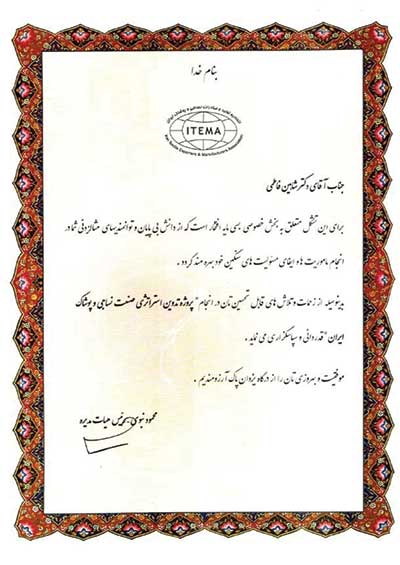 بنام خدا
ITEMA
Iran Textile Exporters & Manufacturers Association
جناب آقای دکتر شاهین فاطمی
برای این تشکل متعلق به بخش خصوصی بسی مایه افتخار است که از دانش بی پایان و توانمندیهای مثال زدنی شما در
انجام ماموریت ها و ایفای مسئولیت های سنگین خود بهره مند گردد .
بدینوسیله از زحمات و تلاش های قابل تحسین تان در انجام " پروژه تدوین استراتژی صنعت نساجی و پوشاک
ایران " قدردانی و سپاسگزاری می نماید .
موفقیت و بهروزی تان را از درگاه یزدان پاک آرزومندیم .
محمود نبوی - رئیس هیات مدیره